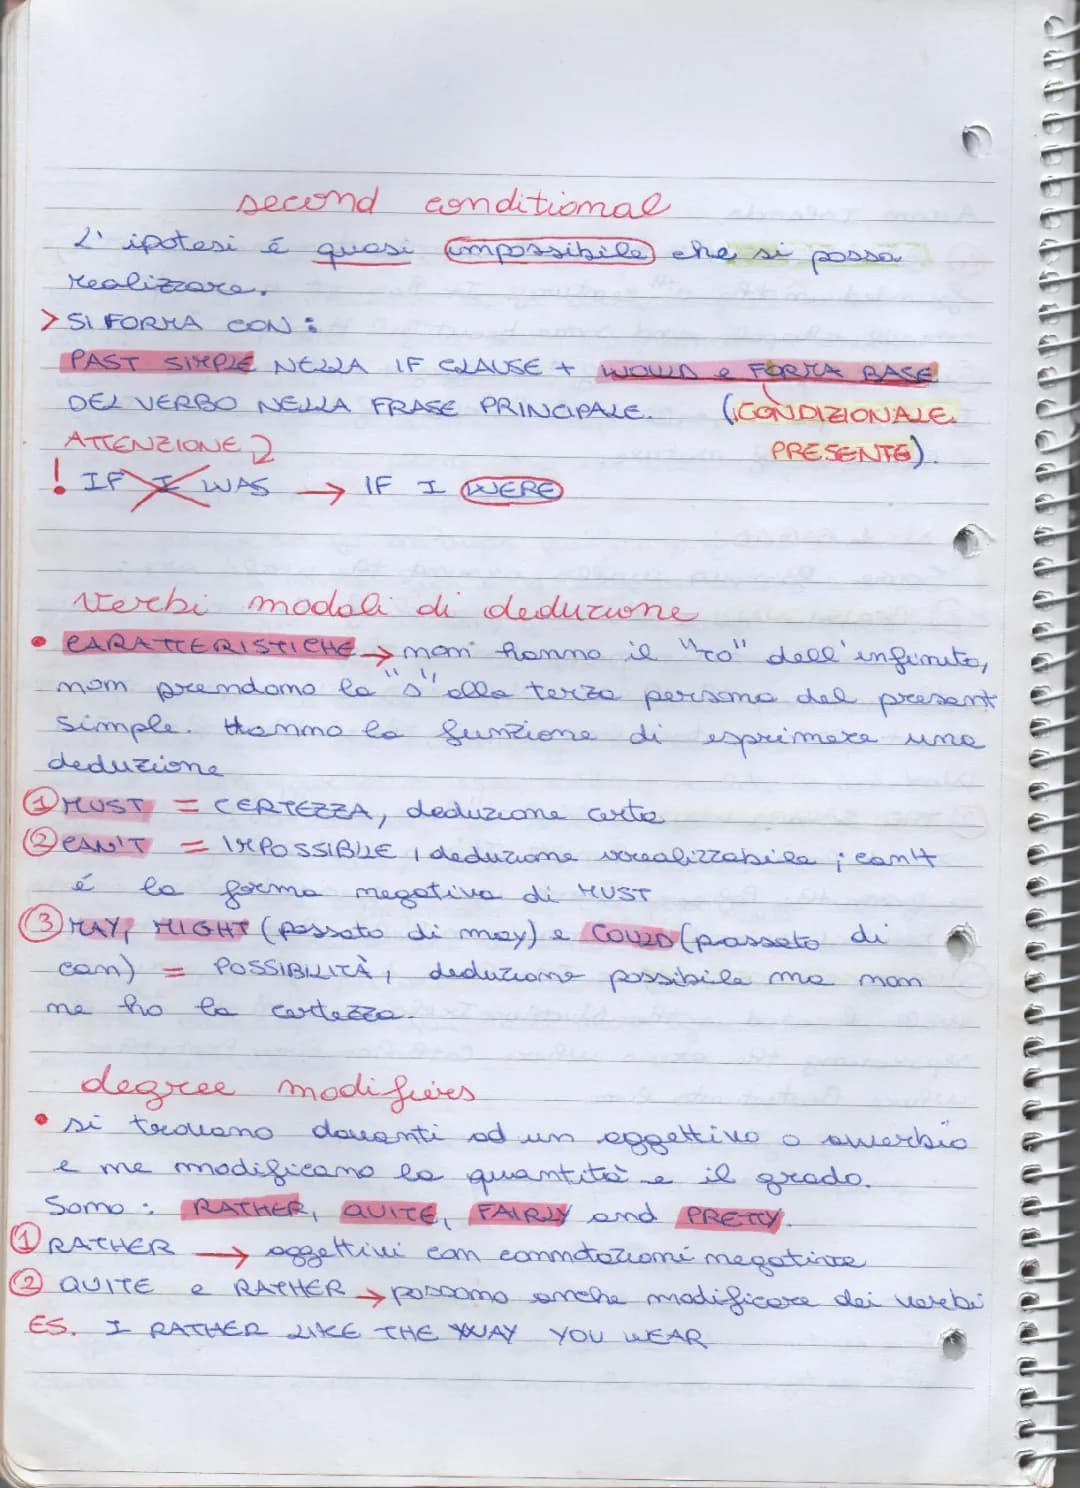 second conditional
L' ipotesi é quasi impossibile che si possa
realizzare.
> SI FORMA CON:
PAST SIMPLE NELLA IF CLAUSE + WOULD e FORMA BASE
DEL VERBO NELLA FRASE PRINCIPALE. (CONDIZIONALE
ATTENZIONE PRESENTE).
! IF I WAS → IF I WERE
Verbi modali di deduzione
• CARATTERISTICHE → non hanno il "TO" dell'infinito,
non prendono la "s" alla terza persona del present
simple. Hanno la funzione di esprimere una
deduzione
① MUST = CERTEZZA, deduzione certa
② CAN'T = IMPOSSIBILE, deduzione irrealizzabile; can't
é la forma negativa di MUST
③ MAY, MIGHT (passato di may) e COULD (passato di
can) = POSSIBILITÀ, deduzione possibile ma non
ne ho la certezza.
degree modifiers
• si trovano davanti ad un aggettivo o avverbio
e ne modificano la quantità e il grado.
Sono: RATHER, QUITE, FAIRLY and PRETTY.
① RATHER → aggettivi con connotazioni negative
② QUITE e RATHER → possono anche modificare dei verbi
ES. I RATHER LIKE THE WAY YOU WEAR